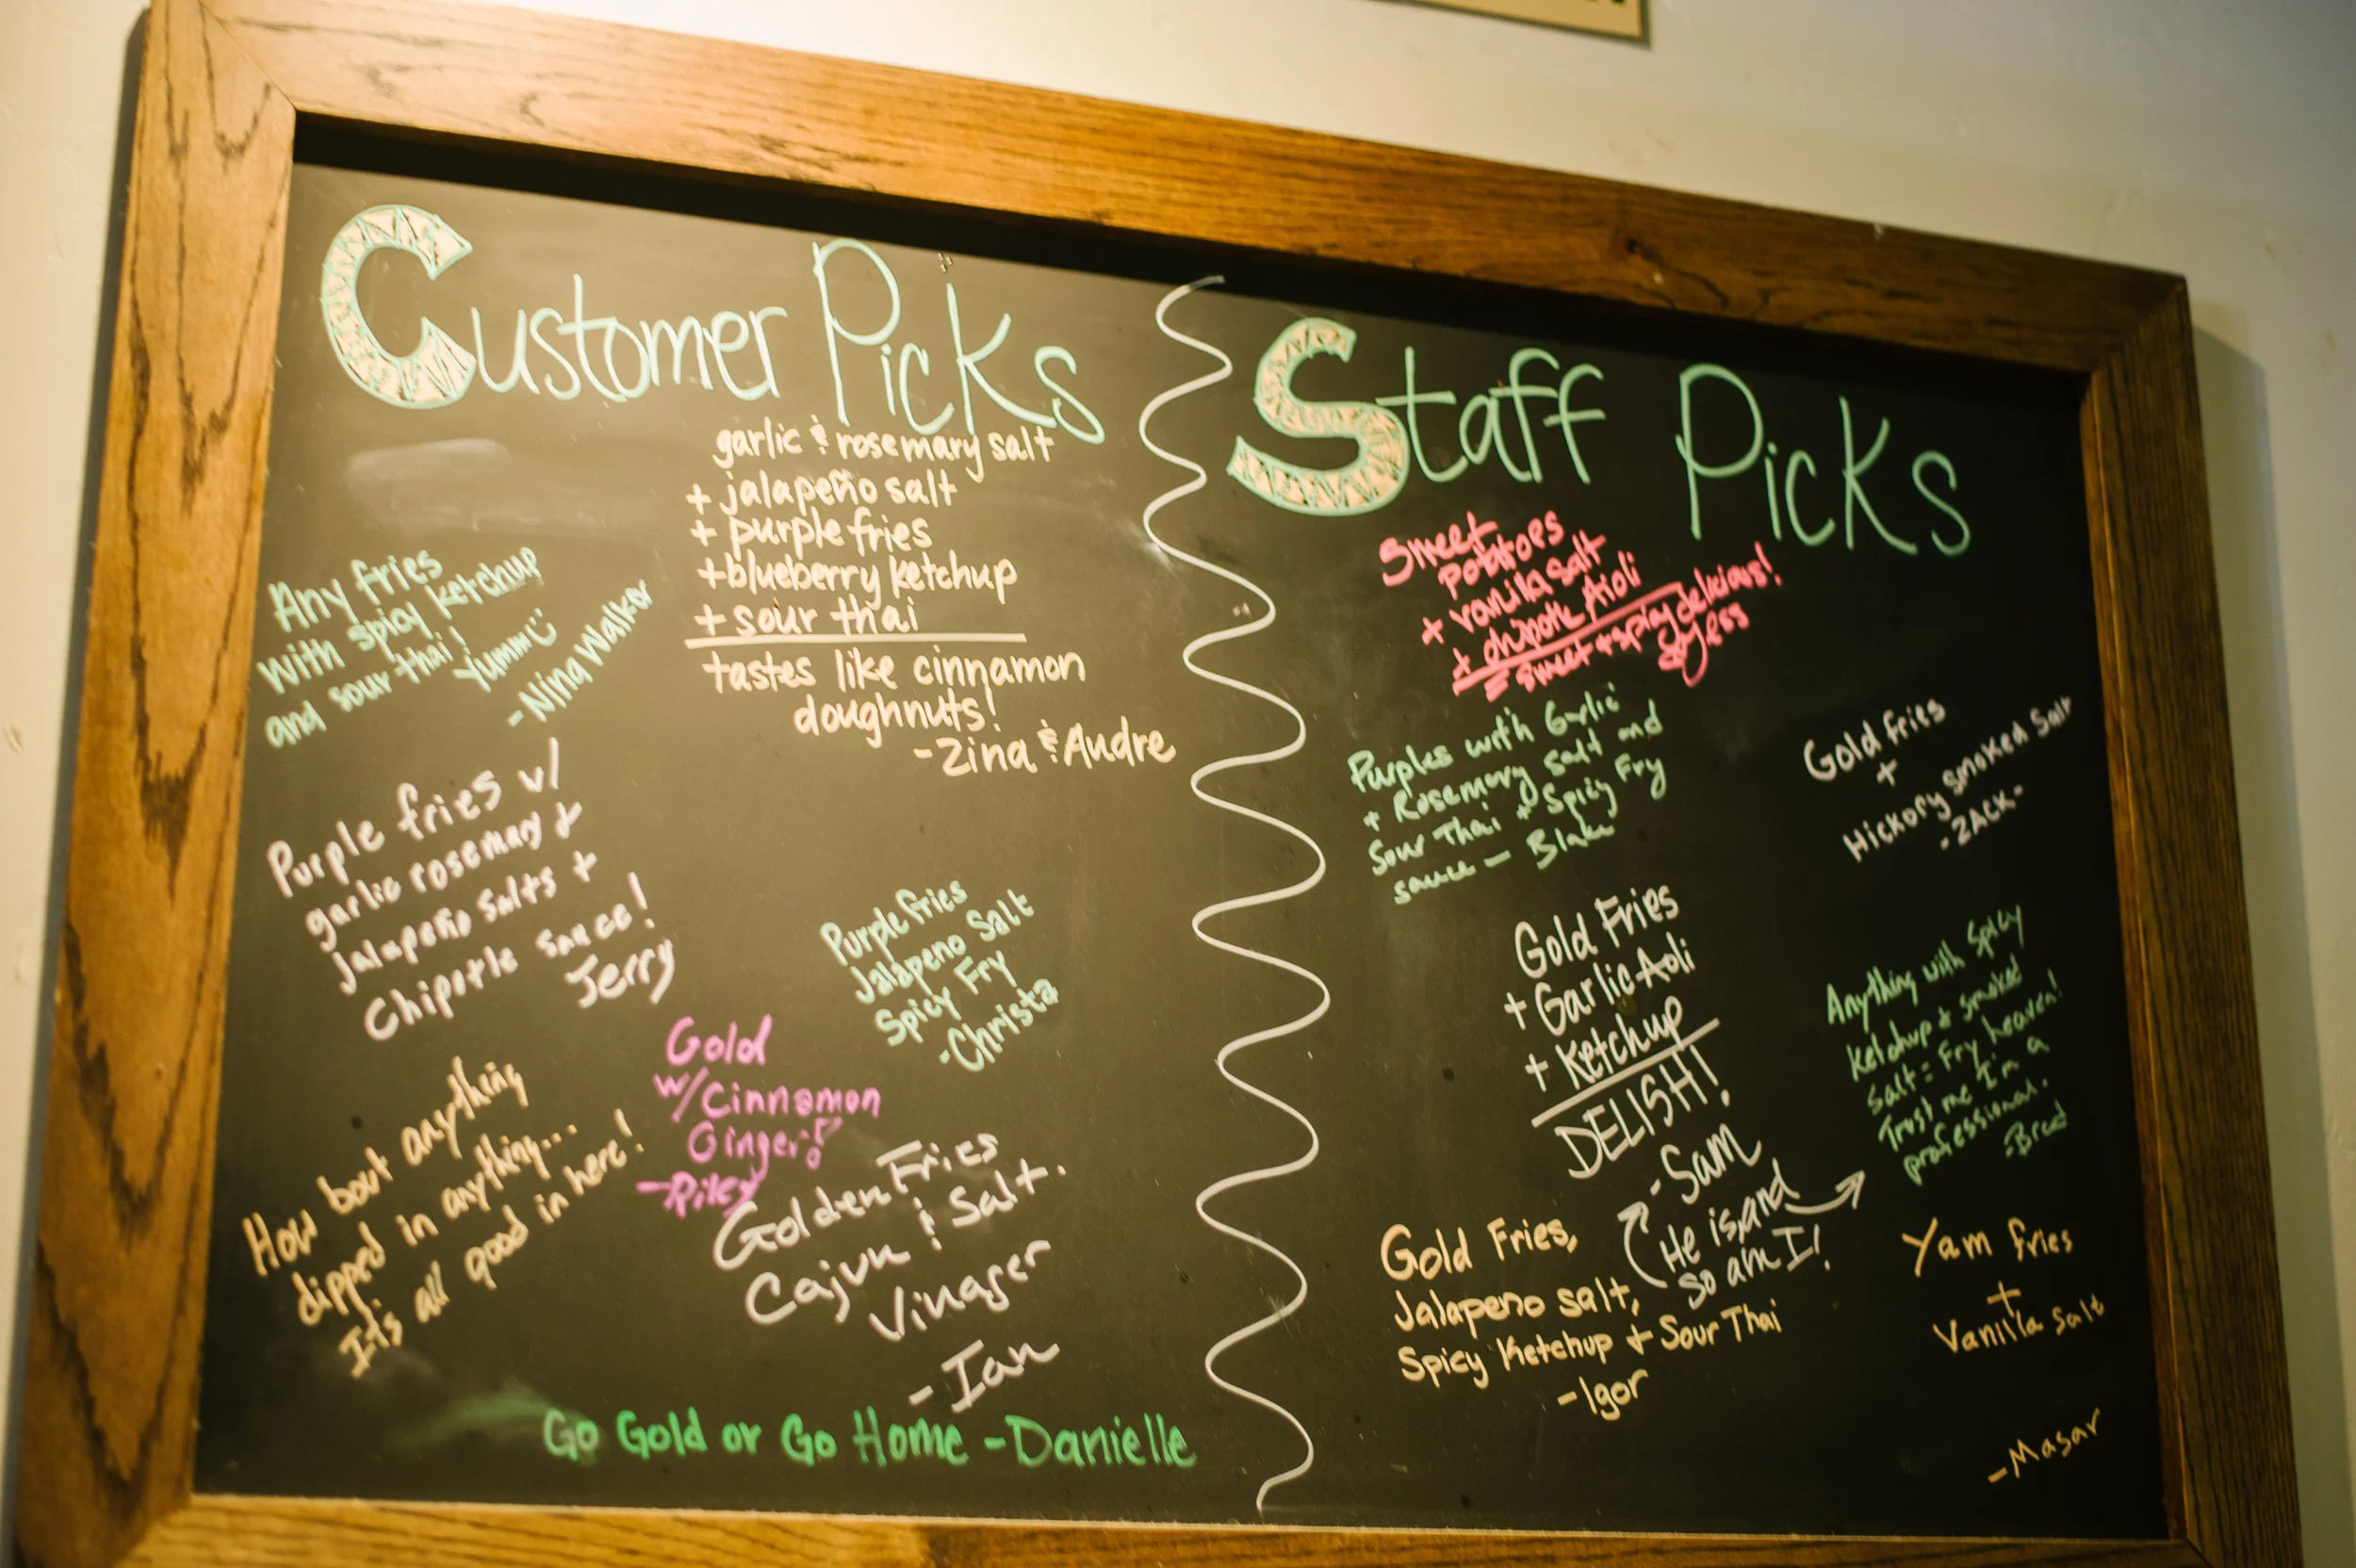 Customer Picks
garlic & rosemary salt
+ jalapeño salt
+ purple fries
+ blueberry ketchup
+ sour thai
tastes like cinnamon
doughnuts!
- Zina & Andre
Any fries
with spicy ketchup
and sour thai!
Yumm
- Nina Walker
Purple fries w/
garlic rosemary &
jalapeño salts +
Chipotle sauce!
Jerry
Purple fries
Jalapeno Salt
Spicy Fry
- Christa
How bout anything
dipped in anything...
It's all good in here!
Gold
w/Cinnamon
Ginger
- Riley
Golden Fries
Cajun & Salt.
Vinager
- Ian
Go Gold or Go Home - Danielle
Staff Picks
Sweet
potatoes
+ vanilla salt
+ chipotle Aioli
= sweet + spicy delicious!
Purples with Garlic
+ Rosemary salt and
Sour Thai + Spicy Fry
sauce - Blake
Gold fries
+
Hickory smoked Salt
- ZACK -
Gold Fries
+ Garlic Aoli
+ Ketchup
DELISH!
- Sam
(He is, and
so am I!
Anything with Spicy
Ketchup & smoked
Salt = Fry heaven!
Trust me I'm a
professional.
- Brad
Gold Fries,
Jalapeno salt,
Spicy Ketchup + Sour Thai
- Igor
Yam fries
+
Vanilla salt
- Masar